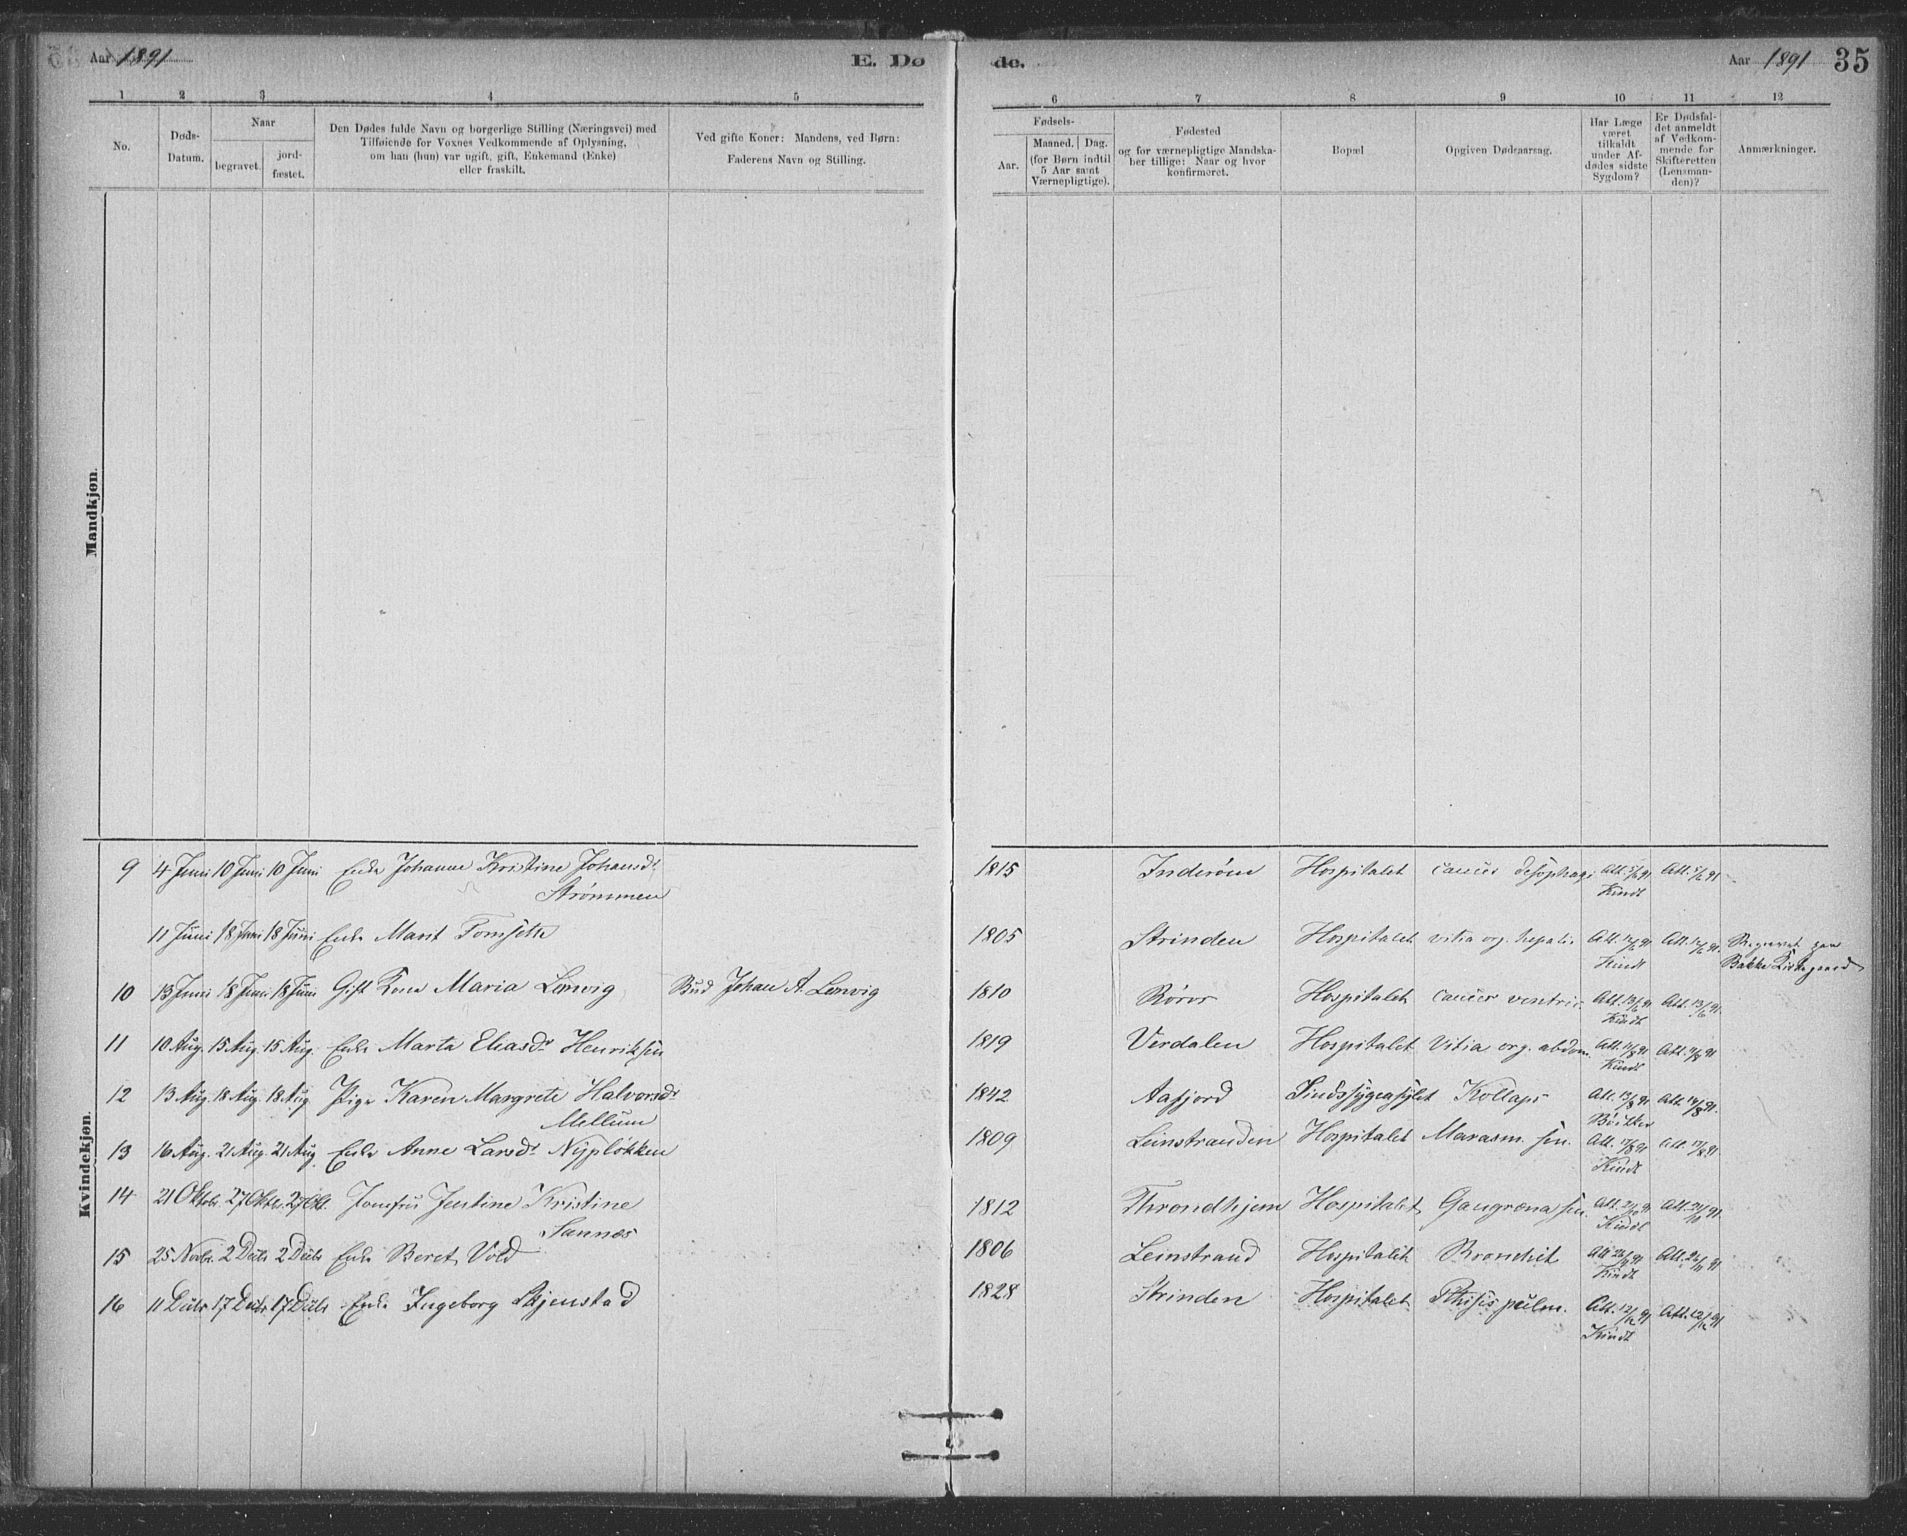 Aar 1891
E. Dø
de.
Aar 1891
35
1 2 3 4 5 6 7 8 9 10 11 12
No.
Døds-
Datum.
Naar
begravet.
jord-
fæstet.
Den Dødes fulde Navn og borgerlige Stilling (Næringsvei) med
Tilføiende for Voxnes Vedkommende af Oplysning,
om han (hun) var ugift, gift, Enkemand (Enke)
eller fraskilt.
Ved gifte Koner: Mandens, ved Børn:
Faderens Navn og Stilling.
Fødsels-
Aar.
Maaned. Dag.
(for Børn indtil
5 Aar samt
Værnepligtige).
Fødested
og for værnepligtige Mandska-
ber tillige: Naar og hvor
konfirmeret.
Bopæl
Opgiven Dødsaarsag.
Har Læge
været
tilkaldt
under Af-
dødes sidste
Sygdom?
Er Dødsfal-
det anmeldt
af Vedkom-
mende for
Skifteretten
(Lensman-
den)?
Anmærkninger.
Mandkjøn.
Kvindekjøn.
9 4 Juni 10 Juni 10 Juni Enke Johanne Kristine Johansdr 1815 Inderøen Hospitalet cancer Att. Att.
Strømmen Kindt
11 Juni 18 Juni 18 Juni Enke Marit 1805 Strinden Hospitalet vitia org. hepatis Att. Att. Begravet paa
Kindt Bakke Kirkegaard
10 13 Juni 18 Juni 18 Juni Gift Kone Maria Lenvig Bud Johan A. Lenvig 1810 Røros Hospitalet cancer ventric. Att. 13/6 91 Att. 13/6 91.
Kindt
11 10 Aug. 15 Aug. 15 Aug. Enke Marta Eliasdr Henriksen 1819 Verdalen Hospitalet Vitia org. abdom. Att. 11/8 91 Att. 11/8 91
Kindt
12 13 Aug. 18 Aug 18 Aug Pige Karen Margrete Halvorsdr 1842 Aafjord Sindssygeasylet Kollaps Att. 13/8 91 Att. 14/8 91.
Mellum
13 16 Aug. 21 Aug. 21 Aug. Enke Anne Larsdr Nypløkken 1809 Leinstranden Hospitalet Marasm. sen. Att. 17/8 91 Att. 17/8 91.
Kindt
14 21 Oktobr. 27 Oktbr. 27 Okt. Jomfru Jentine Kristine 1812 Throndhjem Hospitalet Gangræna sen. Att. 21/10 91 Att. 21/10 91.
Sannes Kindt
15 25 Novbr. 2 Decbr 2 Decbr Enke Beret Vold 1806 Leinstrand Hospitalet Bronchit Att 26/11 91 Att. 26/11 91
Kindt
16 11 Decbr 17 Decbr 17 Decbr Enke Ingeborg Skjenstad 1828 Strinden Hospitalet Pthisis pulm. Att. 12/12 91 Att. 12/12 91
Kindt